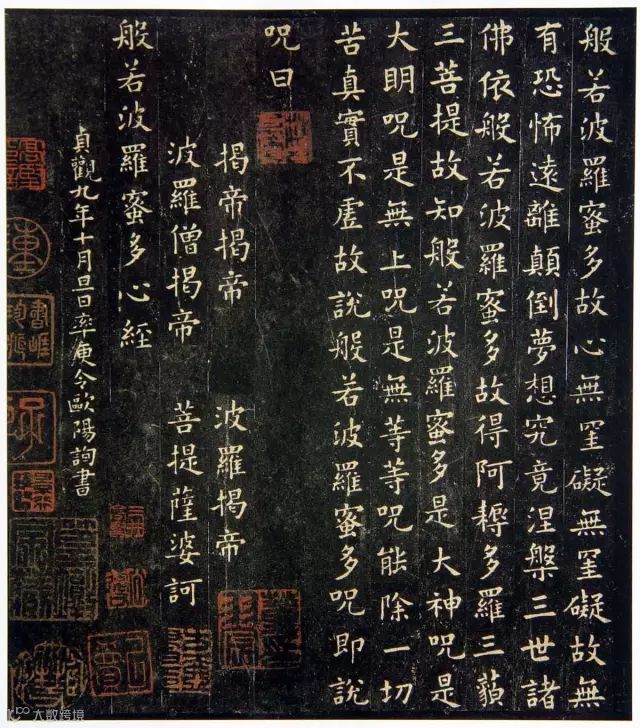 般若波羅蜜多故心無罣礙無罣礙故無
有恐怖遠離顛倒夢想究竟涅槃三世諸
佛依般若波羅蜜多故得阿耨多羅三藐
三菩提故知般若波羅蜜多是大神咒是
大明咒是無上咒是無等等咒能除一切
苦真實不虛故說般若波羅蜜多咒即說
咒曰
揭帝揭帝 波羅揭帝
波羅僧揭帝 菩提薩婆訶
般若波羅蜜多心經
貞觀九年十月旦日率更令歐陽詢書
大数跨境